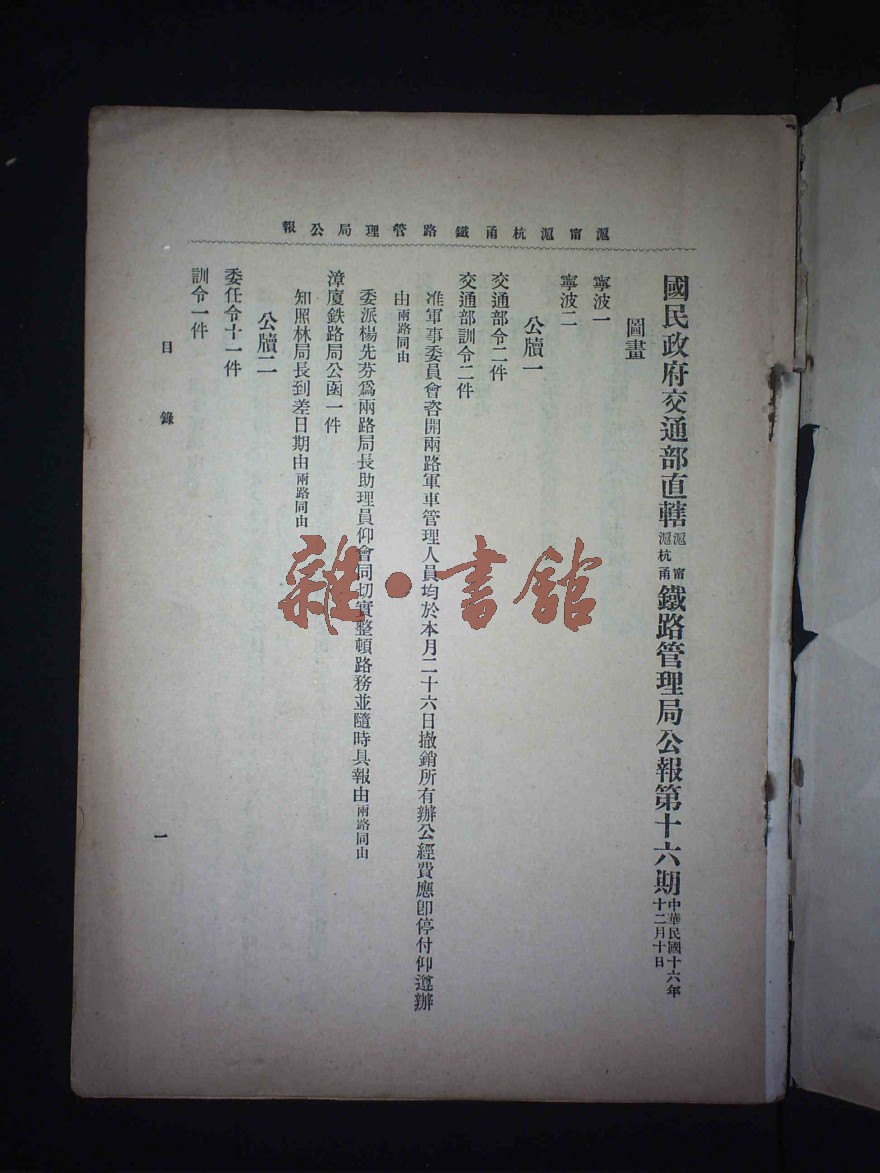 滬甯滬杭甬鐵路管理局公報
國民政府交通部直轄滬甯滬杭甬鐵路管理局公報第十六期中華民國十六年十二月十日
圖畫
寧波一
寧波二
公牘一
交通部令二件
交通部訓令二件
准軍事委員會咨開兩路軍車管理人員均於本月二十六日撤銷所有辦公經費應卽停付仰遵辦
由兩路同由
委派楊先芬爲兩路局長助理員仰會同切實整頓路務並隨時具報由兩路同由
漳廈鉄路局公函一件
知照林局長到差日期由兩路同由
公牘二
委任令十一件
訓令一件
目錄
一
雜·書館